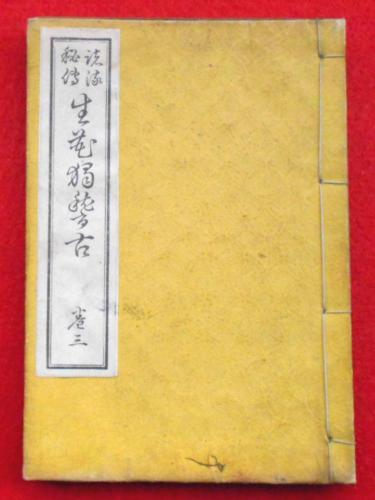 諸流
秘傳
生花獨稽古
卷三